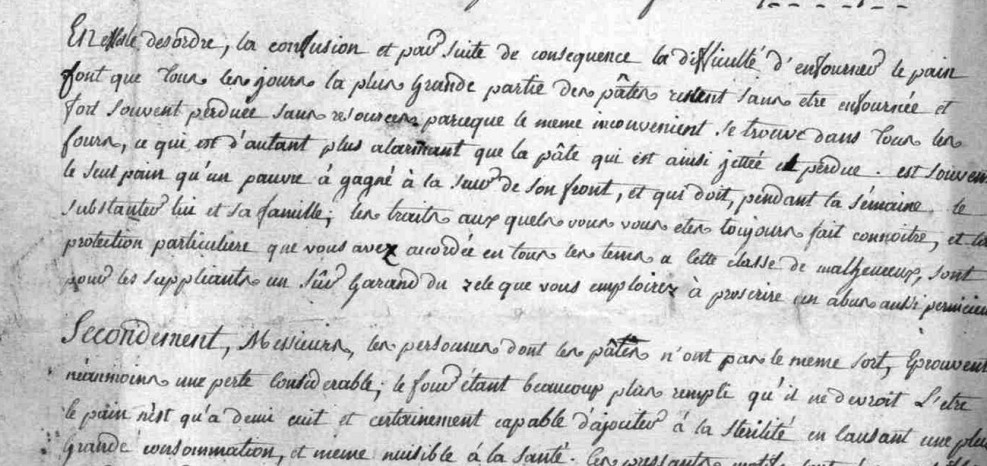 En effet le desordre, la confusion et par suite de consequence la difficulté d'enfourner le pain
font que tous les jours la plus grande partie des pâtes restent sans etre enfournée et
fort souvent perduée sans resources parceque le meme inconvenient se trouve dans tous les
fours, ce qui est d'autant plus alarmant que la pâte qui est ainsi jettée et perdue. est souvent
le seul pain qu'un pauvre à gagné à la sueur de son front, et qui doit, pendant la sémaine, le
substanter lui et sa famille; les traits aux quels vous vous etes toujours fait connoitre, et la
protection particuliere que vous avez accordée en tous les tems a cette classe de malheureux, sont
pour les suppliants un sûr garand du zele que vous emploirez à proscrire un abus aussi pernicieux
Secondement, Messieurs, les personnes dont les pâtes n'ont pas le meme sort, éprouvent
néanmoins une perte considerable; le four étant beaucoup plus remple qu'il ne devroit L'etre
le pain n'est qu'a demi cuit et certainement capable d'ajouter à la stérilité en causant une plus
grande consommation, et meme nuisible à la santé.